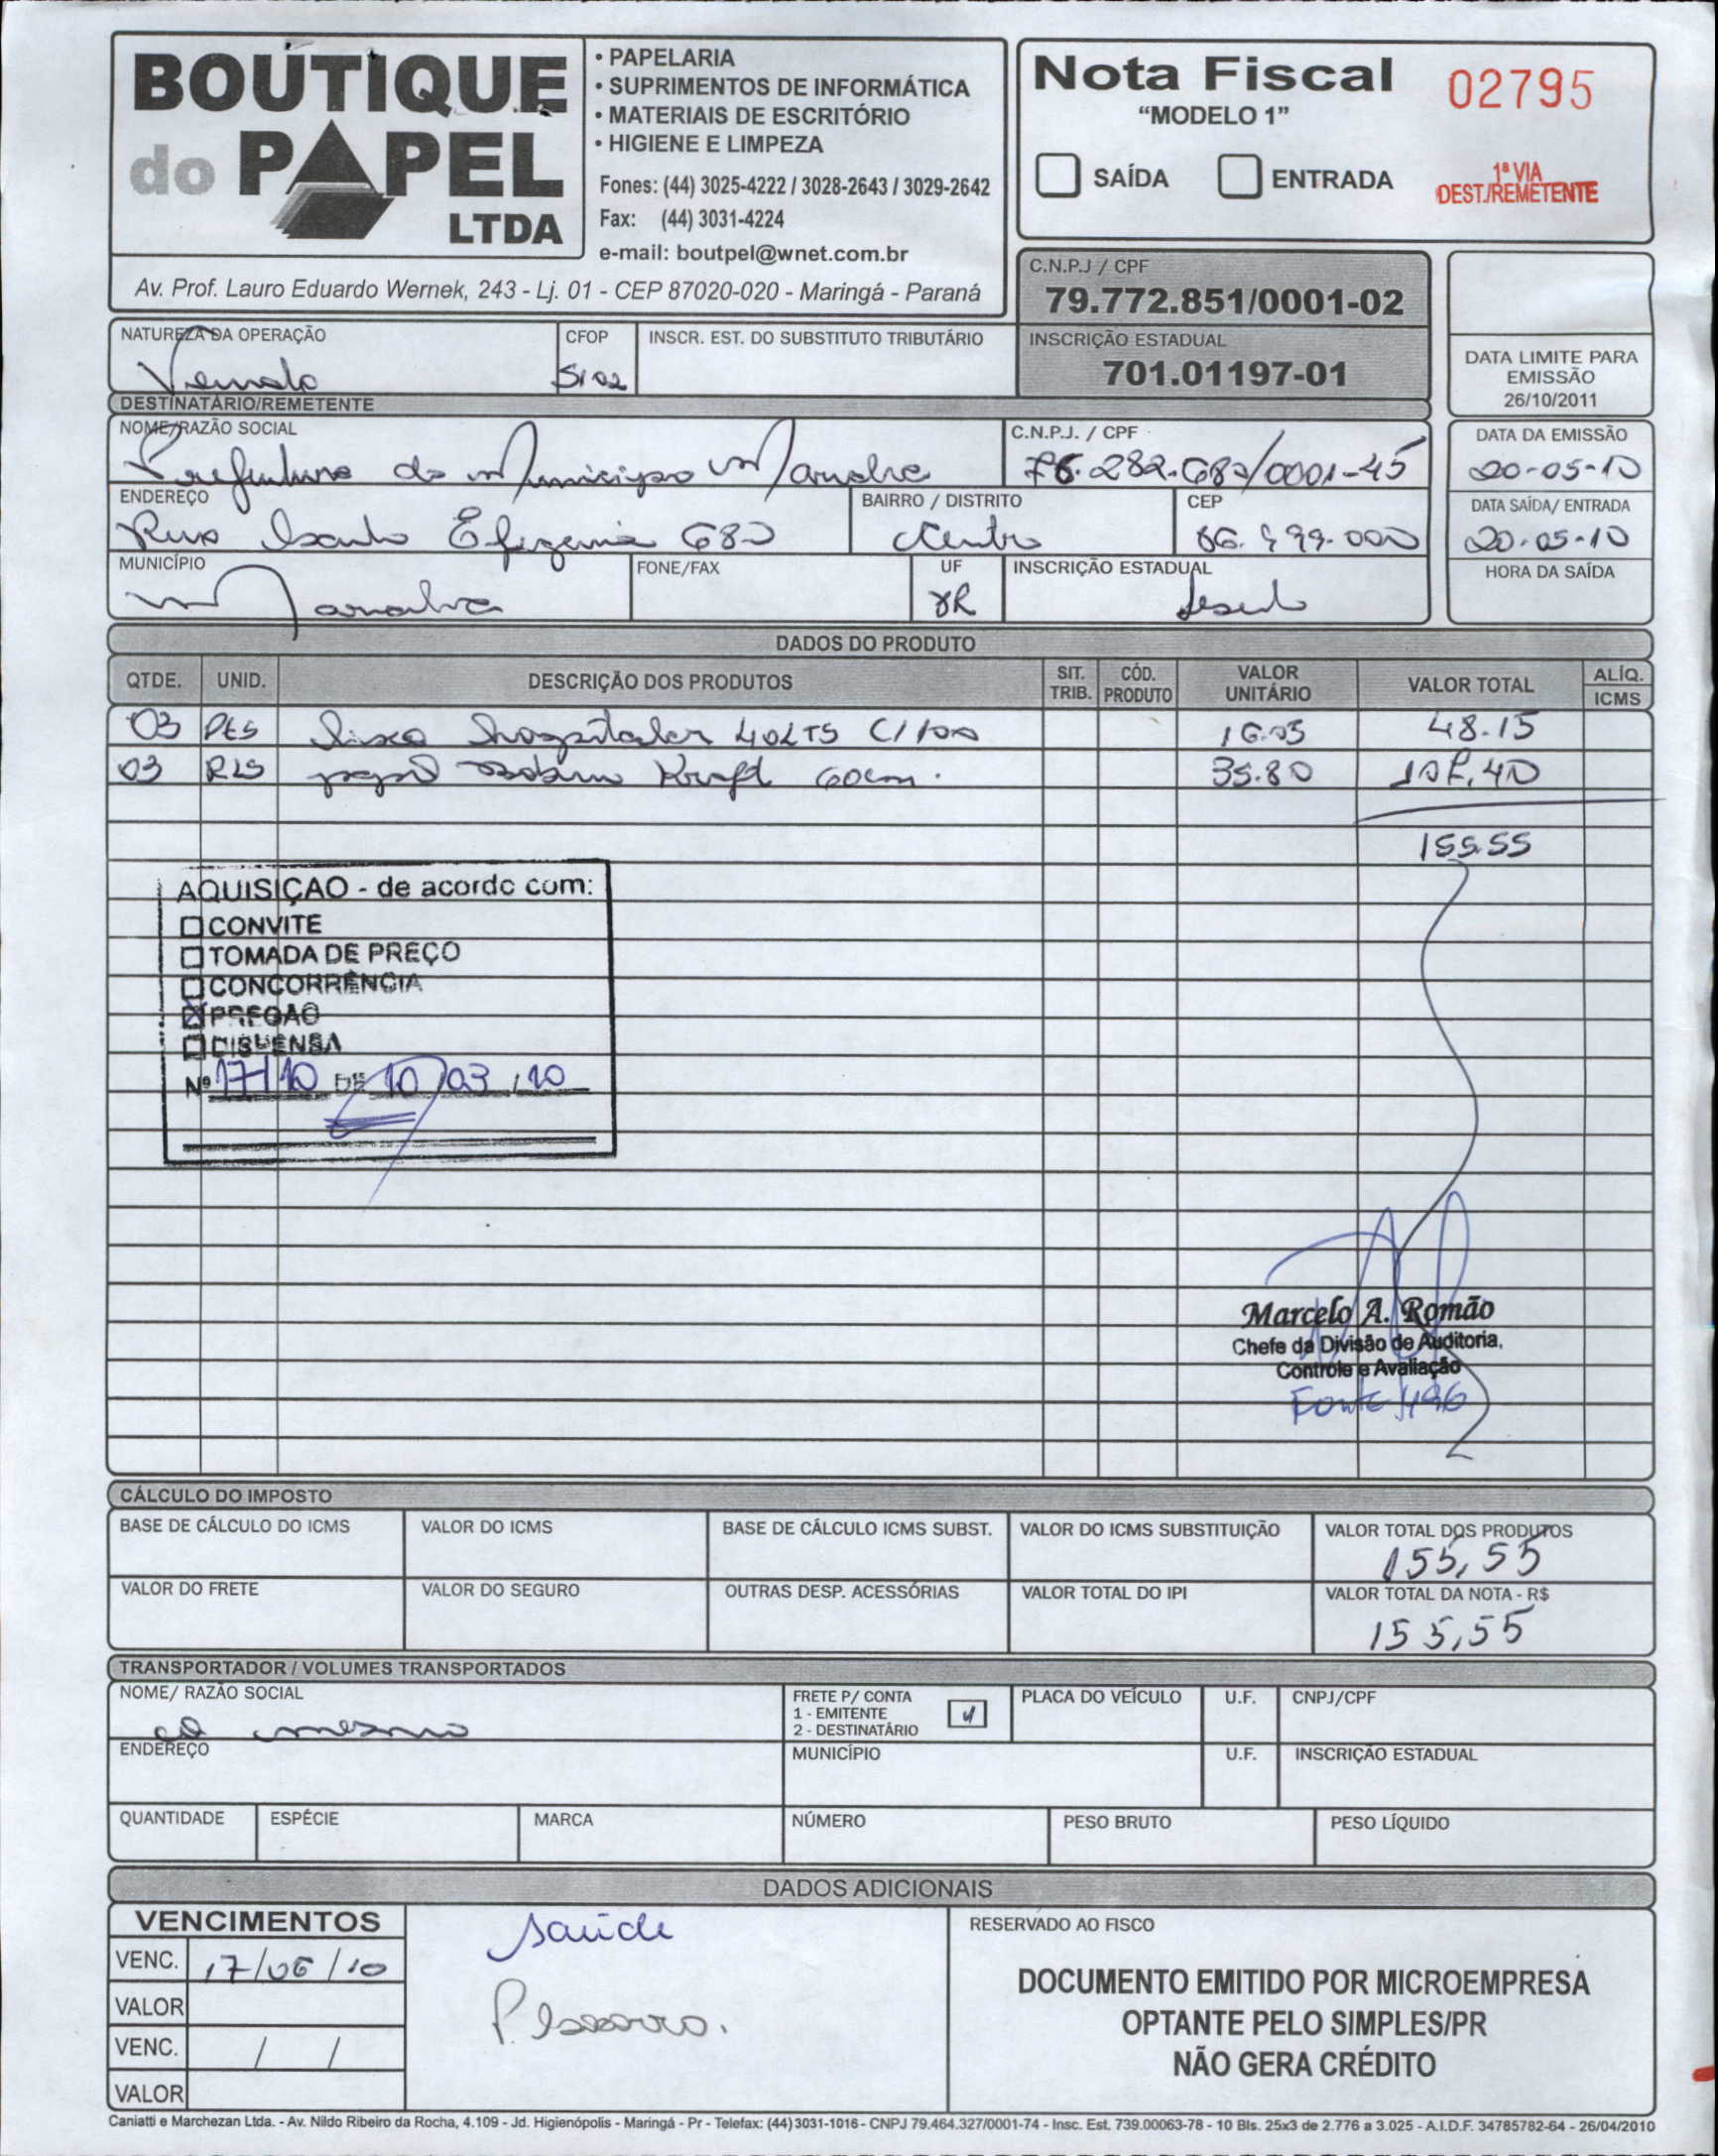 BOUTIQUE
do PAPEL
LTDA
• PAPELARIA
• SUPRIMENTOS DE INFORMÁTICA
• MATERIAIS DE ESCRITÓRIO
• HIGIENE E LIMPEZA
Fones: (44) 3025-4222 / 3028-2643 / 3029-2642
Fax: (44) 3031-4224
e-mail: boutpel@wnet.com.br
Av. Prof. Lauro Eduardo Wernek, 243 - Lj. 01 - CEP 87020-020 - Maringá - Paraná
Nota Fiscal
"MODELO 1"
02795
SAÍDA ENTRADA
1ª VIA
DEST./REMETENTE
C.N.P.J / CPF
79.772.851/0001-02
INSCRIÇÃO ESTADUAL
701.01197-01
DATA LIMITE PARA
EMISSÃO
26/10/2011
NATUREZA DA OPERAÇÃO CFOP INSCR. EST. DO SUBSTITUTO TRIBUTÁRIO
Venda 5102
DESTINATÁRIO/REMETENTE
NOME/RAZÃO SOCIAL C.N.P.J. / CPF DATA DA EMISSÃO
Prefeitura do Municipio Marialva 76.282.680/0001-45 20-05-10
ENDEREÇO BAIRRO / DISTRITO CEP DATA SAÍDA/ ENTRADA
Rua Santa Efigenia 680 Centro 86.990.000 20-05-10
MUNICÍPIO FONE/FAX UF INSCRIÇÃO ESTADUAL HORA DA SAÍDA
Marialva PR Isento
DADOS DO PRODUTO
QTDE. UNID. DESCRIÇÃO DOS PRODUTOS SIT. TRIB. CÓD. PRODUTO VALOR UNITÁRIO VALOR TOTAL ALÍQ. ICMS
03 PCS hospitalar 40LTS C/100 16.05 48.15
03 RLS papel bobina Kraft 60cm. 35.80 107,40
155.55
AQUISIÇAO - de acordo com:
CONVITE
TOMADA DE PREÇO
CONCORRÊNCIA
PREGAO
DISPENSA
Nº 17/10 DE 10/03/10
Marcelo A. Romão
Chefe da Divisão de Auditoria,
Controle e Avaliação
Fonte 496
CÁLCULO DO IMPOSTO
BASE DE CÁLCULO DO ICMS VALOR DO ICMS BASE DE CÁLCULO ICMS SUBST. VALOR DO ICMS SUBSTITUIÇÃO VALOR TOTAL DOS PRODUTOS
155,55
VALOR DO FRETE VALOR DO SEGURO OUTRAS DESP. ACESSÓRIAS VALOR TOTAL DO IPI VALOR TOTAL DA NOTA - R$
155,55
TRANSPORTADOR / VOLUMES TRANSPORTADOS
NOME/ RAZÃO SOCIAL FRETE P/ CONTA PLACA DO VEÍCULO U.F. CNPJ/CPF
1 - EMITENTE
2 - DESTINATÁRIO
o mesmo
ENDEREÇO MUNICÍPIO U.F. INSCRIÇÃO ESTADUAL
QUANTIDADE ESPÉCIE MARCA NÚMERO PESO BRUTO PESO LÍQUIDO
DADOS ADICIONAIS
VENCIMENTOS
VENC. 17/06/10
VALOR
VENC. / /
VALOR
Saúde
RESERVADO AO FISCO
DOCUMENTO EMITIDO POR MICROEMPRESA
OPTANTE PELO SIMPLES/PR
NÃO GERA CRÉDITO
Caniatti e Marchezan Ltda. - Av. Nildo Ribeiro da Rocha, 4.109 - Jd. Higienópolis - Maringá - Pr - Telefax: (44) 3031-1016 - CNPJ 79.464.327/0001-74 - Insc. Est. 739.00063-78 - 10 Bls. 25x3 de 2.776 a 3.025 - A.I.D.F. 34785782-64 - 26/04/2010